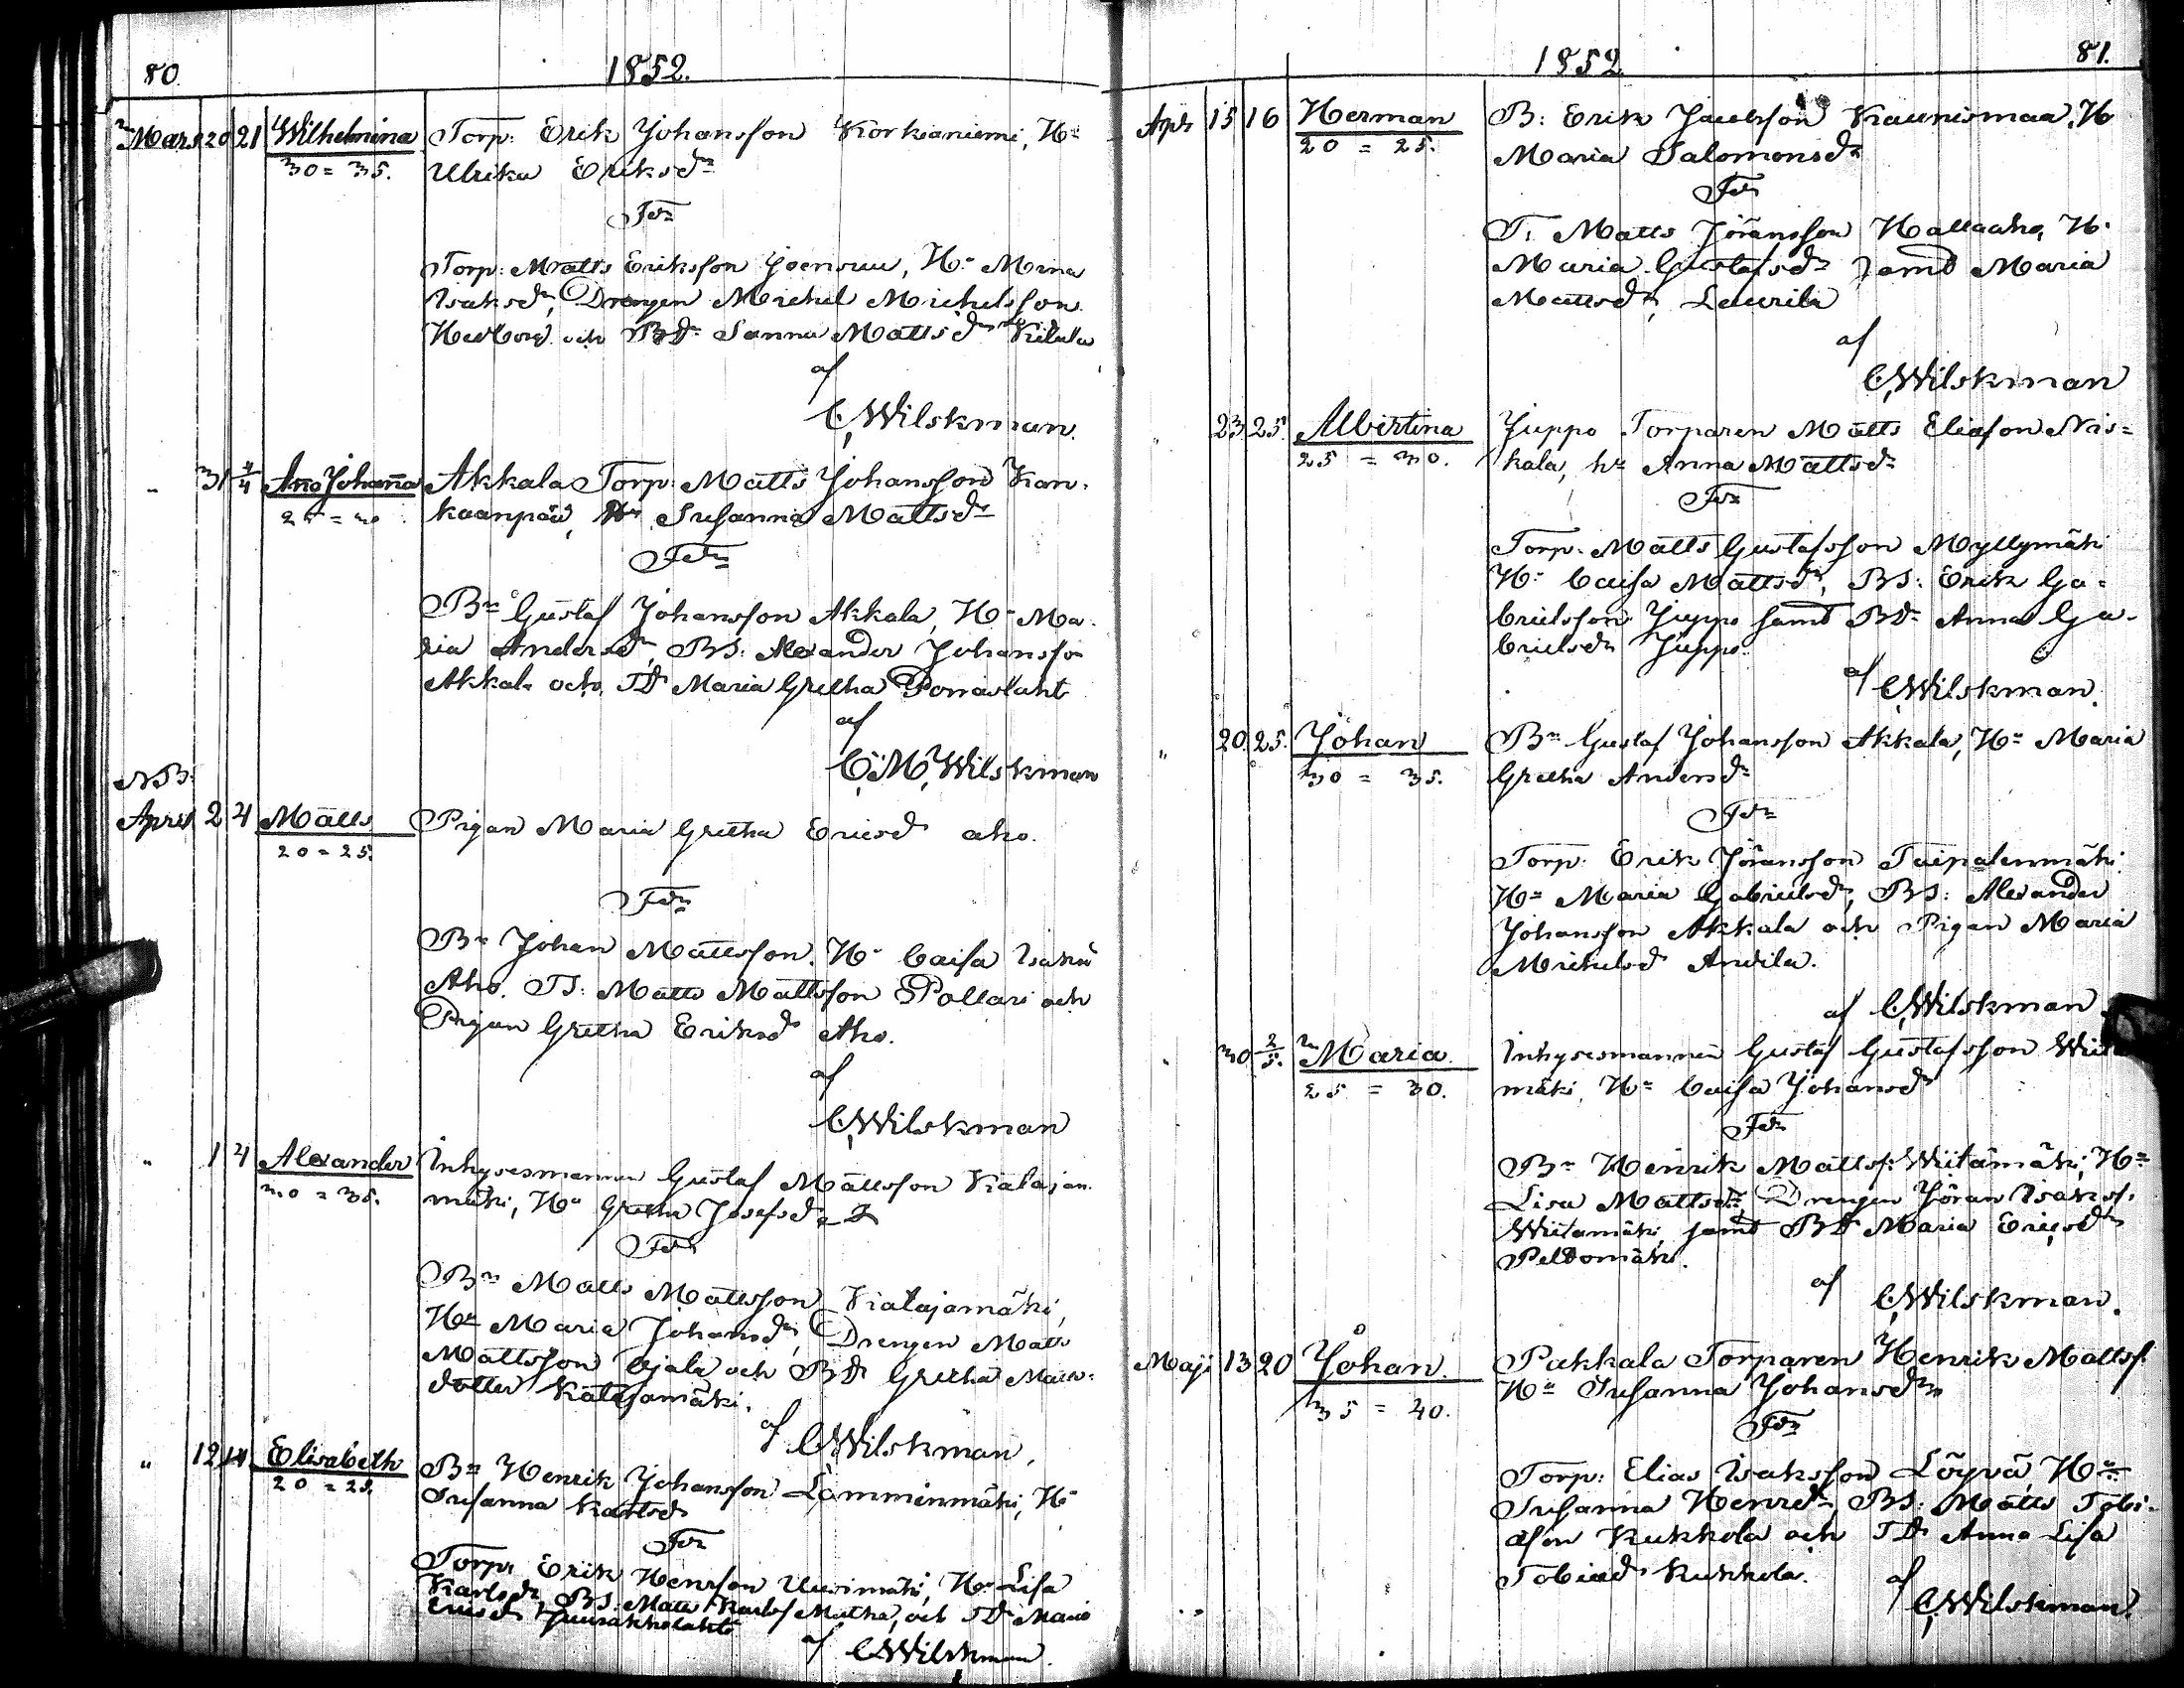 80.
1852.
Mars 20 21 Wilhelmina Torp: Erik Johansson Korkianiemi, Hu
30 = 35. Ulrika Eriksdr
Fdr
Torp: Matts Eriksson Joensuu, Hu
Isaksdr, Drengen Michel Michelsson
Hedborg och BDr Sanna Mattsdr
af
C, Wilskman.
" 31 1/4 Ana Johana Akkala Torp: Matts Johansson Kan-
25 = 30 kaanpää, Hu Susanna Mattsdr
Fdr
Bn Gustaf Johansson Akkala, Hu Ma-
ria Andersdr, BS: Alexander Johansso
Akkala och TDr Maria Gretha Porraslaht
af
C, M, Wilskman
NB:
April 2 4 Matts Pigan Maria Gretha Ericsd aho.
20 = 25.
Fdr
Bn Johan Mattsson, Hu Caisa Isaksd
Aho. TS: Matts Mattsson Pollari och
Pigan Gretha Eriksd Aho.
af
C, Wilskman
" 1 4 Alexander Inhysesmannen Gustaf Mattsson Katajan
30 = 35. mäki, Hu Gretha Josefsdr
Fdr
Bn Matts Mattsson Katajamäki,
Hu Maria Johansdr, Drengen Matts
Mattsson Ojala och BDr Gretha Matts-
dotter Katajamäki.
af C, Wilskman.
" 12 14 Elisabeth Bn Henrik Johansson Lamminmäki, Hu
20 = 25. Susanna Karlsdr
Fdr
Torp: Erik Henrsson Uusimäki, Hu Lisa
Karlsdr, BS: Matts Karlsf och TDr Maria
Ericsd
af C Wilskman.
1852
81.
Apr 15 16 Herman B: Erik Jacobsson Kaunismaa, H
20 = 25. Maria Salomonsdr
Fdr
T: Matts Jöransson Hallaaho, H:
Maria Gustafsdr samt Maria
Mattsdr, Laurila
af
C, Wilskman
" 23 25. Albertina Juppo Torparen Matts Eliasson Nis-
25 = 30. kala, hu Anna Mattsdr
Fdr
Torp: Matts Gustafsson Myllymäki
Hu Caisa Mattsdr, BS: Erik Ga-
brielsson Juppo samt BDr Anna Ga-
brielsdr Juppo.
af C, Wilskman.
" 20 25. Johan Bn Gustaf Johansson Akkala, Hu Maria
30 = 35. Gretha Andersdr
Fdr
Torp: Erik Jöransson Taipalenmäki
Hu Maria Gabrielsdr, BS: Alexander
Johansson Akkala och Pigan Maria
Michelsd Anvila.
af C, Wilskman
" 30 2/5. Maria. Inhysesmannen Gustaf Gustafsson
25 = 30. mäki, Hu Caisa Johansdr
Fdr
Bn Henrik Mattsf: Wiitamäki, Hu
Lisa Mattsdr, Drengen Jöran Isaksf.
Wiitamäki, samt BDr Maria Ericsdr
Peldomäki.
af
C, Wilskman.
Maji 13 20 Johan. Pukkala Torparen Henrik Mattsf:
35 = 40. Hu Susanna Johansdr
Fdr
Torp: Elias Isaksson Löyvä, Hu
Susanna Henrsdr, BS: Matts Tobi-
asson Kukkola och TDr Anna Lisa
Tobiasdr Kukkola.
af
C, Wilskman.